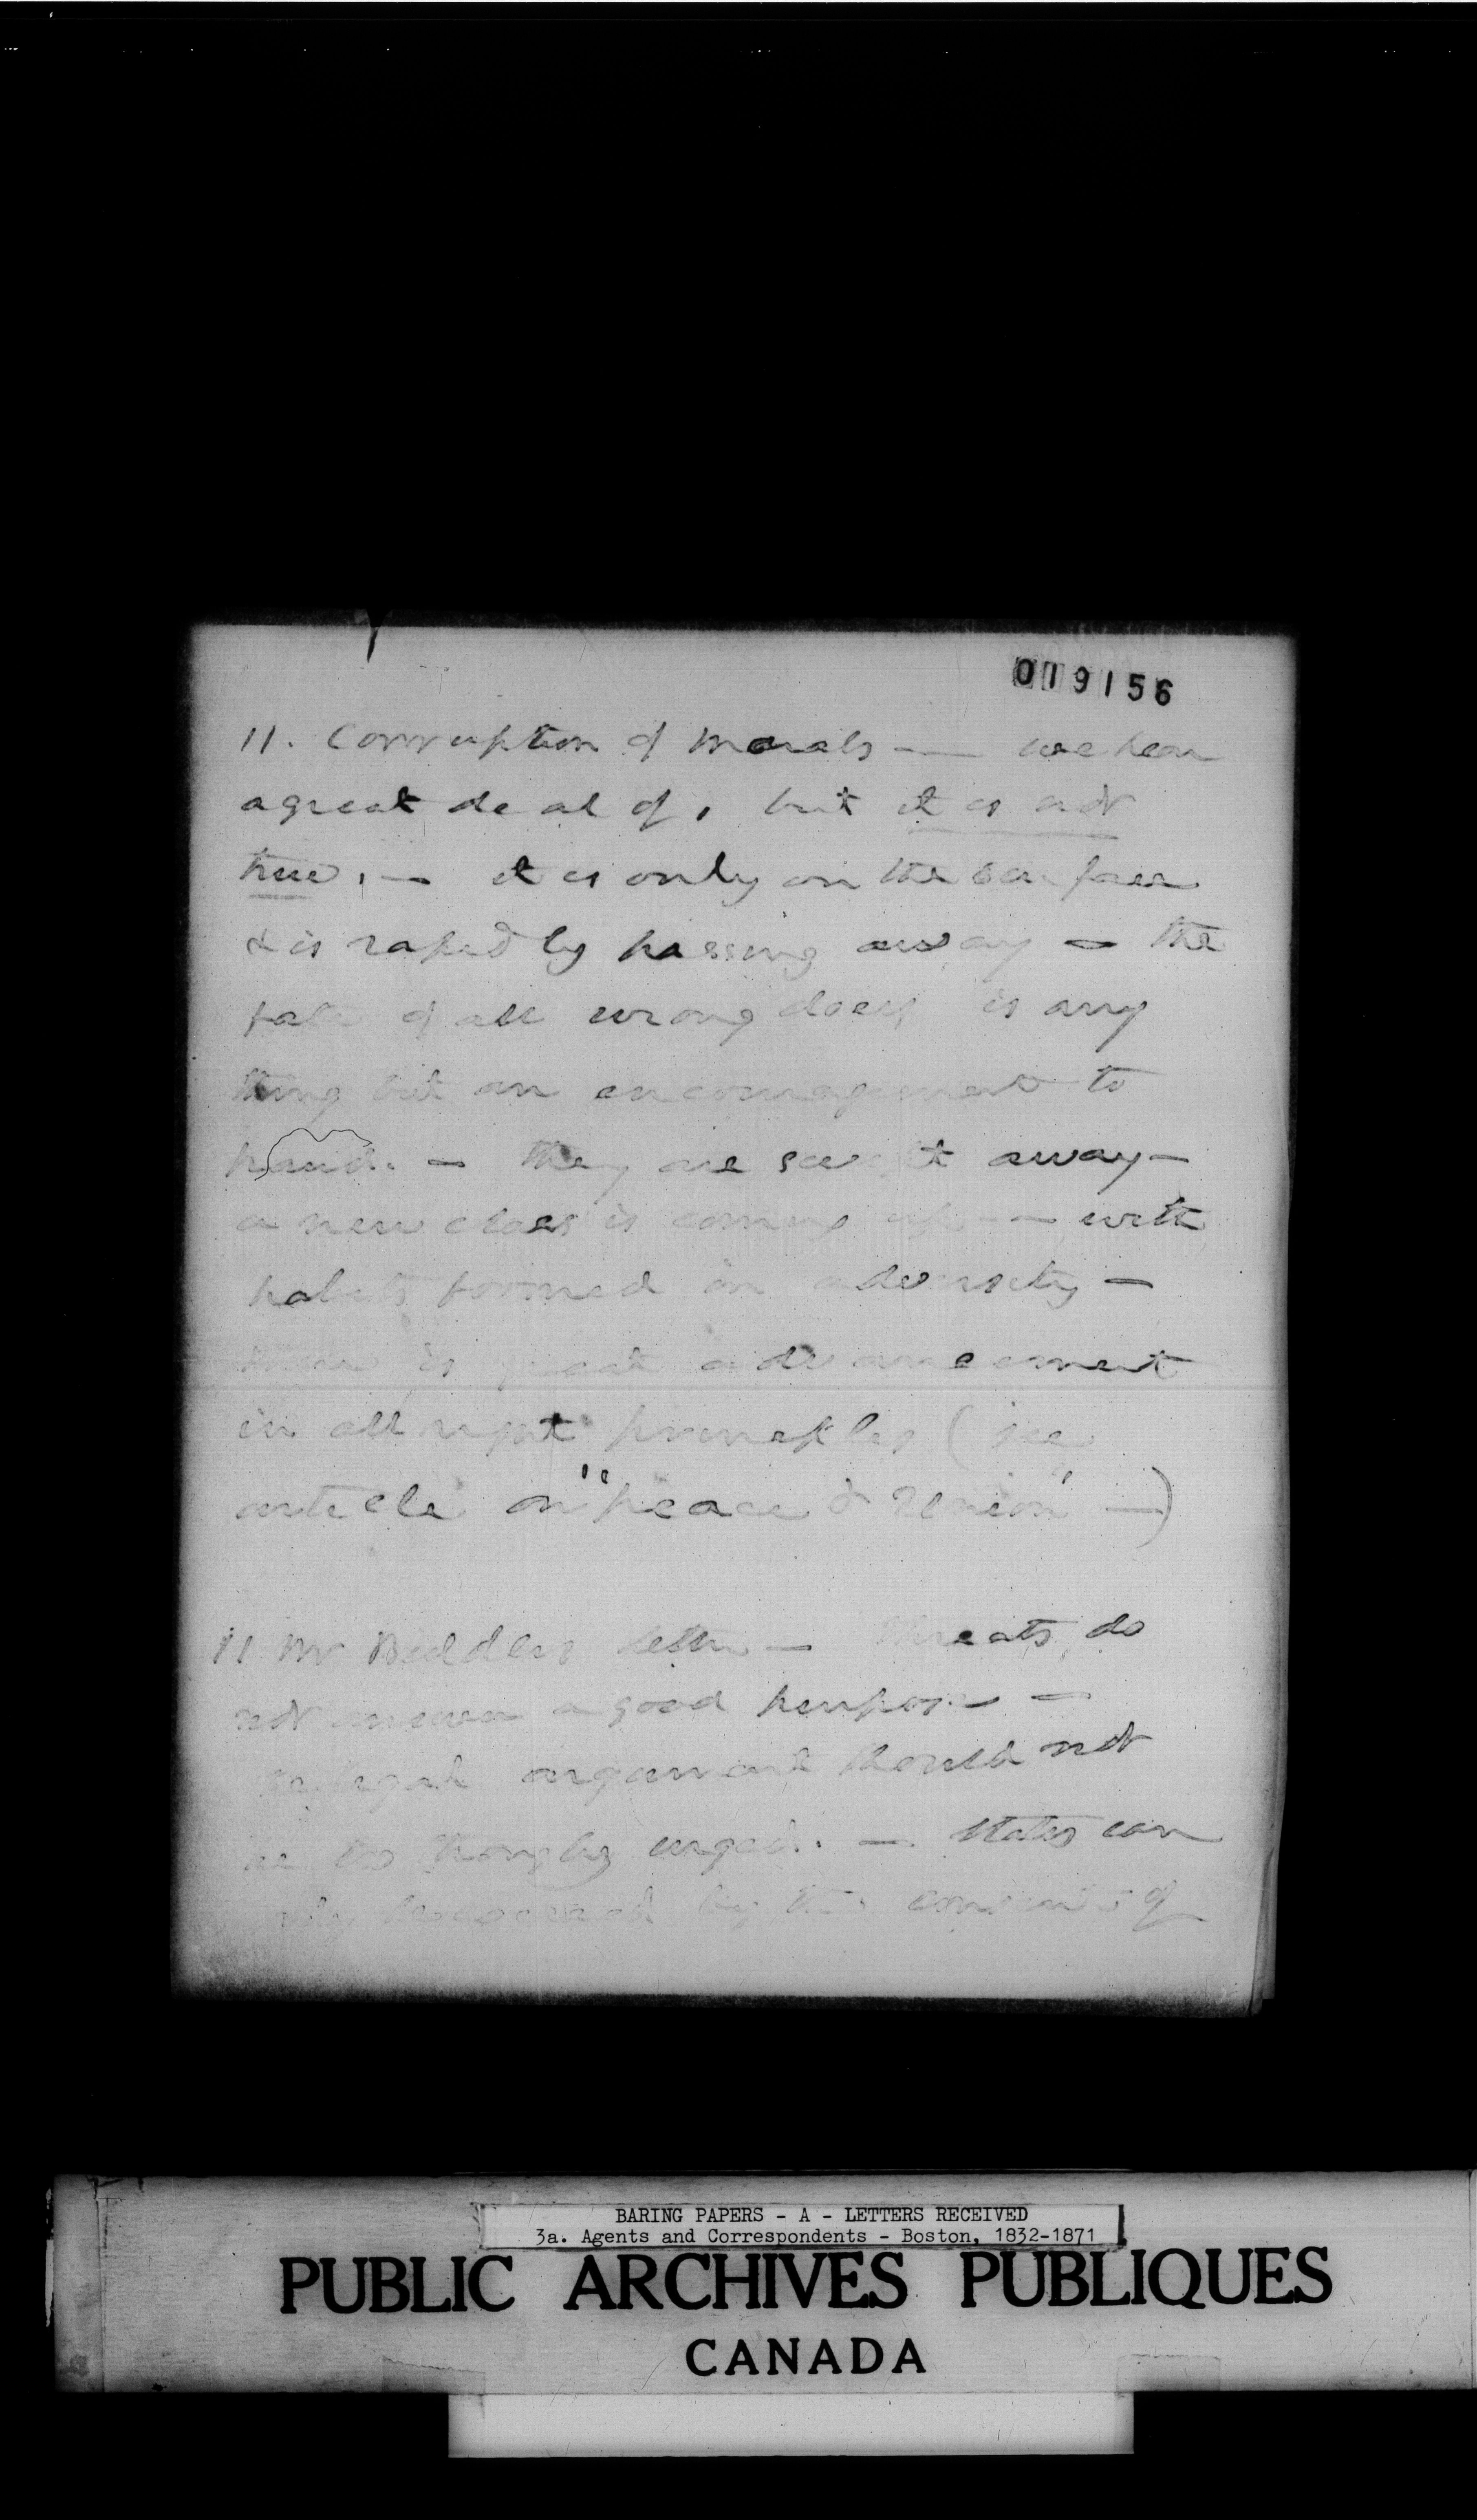 019156
11. Corruption of Morals — we hear
a great deal of, but it is not
true, — it is only on the surface
& is rapidly passing away — the
fate of all wrong doers is any
thing but an encouragement to
fraud. — they are swept away —
a new class is coming up — with
habits formed in adversity —
there is great advancement
in all right principles (see
article on "peace & Union" —)
11 Mr letter — threats do
not answer a good purpose —
argument should not
be so strongly urged. — States can
only be by the of
BARING PAPERS - A - LETTERS RECEIVED
3a. Agents and Correspondents - Boston, 1832-1871
PUBLIC ARCHIVES PUBLIQUES
CANADA